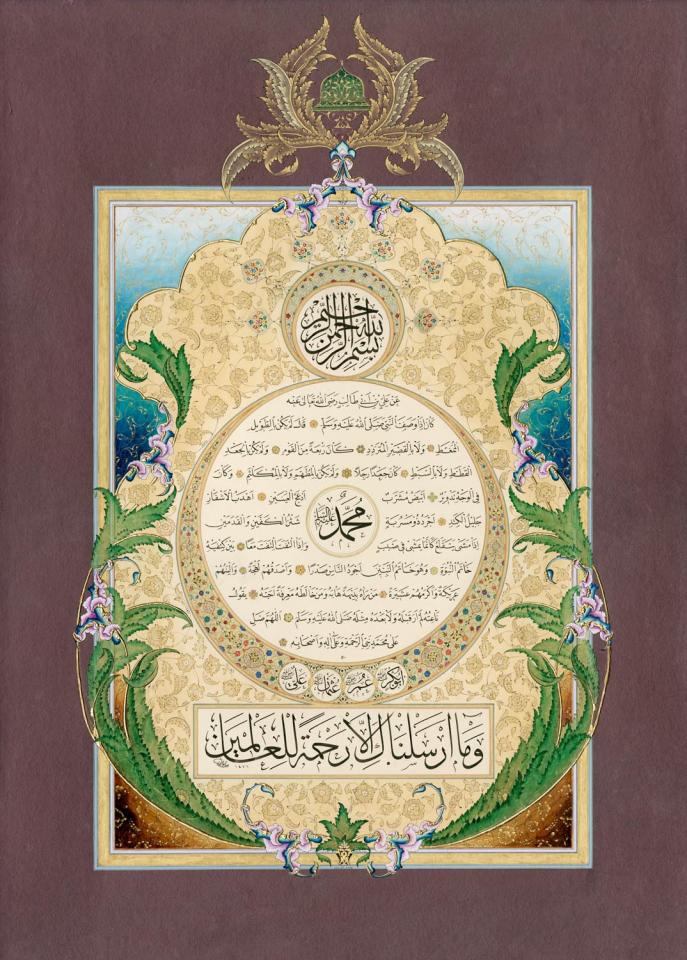 بسم الله الرحمن الرحيم
عن علي بن ابي طالب رضي الله تعالى عنه
كان اذا وصف النبي صلى الله عليه وسلم قال لم يكن بالطويل
الممغط ولا بالقصير المتردد كان ربعة من القوم ولم يكن بالجعد
القطط ولا بالسبط كان جعدا رجلا ولم يكن بالمطهم ولا بالمكلثم وكان
في الوجه تدوير ابيض مشرب ادعج العينين اهدب الاشفار
جليل الكتد اجرد ذو مسربة شثن الكفين والقدمين
اذا مشى يتقلع كانما يمشي في صبب واذا التفت التفت معا بين كتفيه
محمد عليه السلام
خاتم النبوة وهو خاتم النبيين اجود الناس صدرا واصدقهم لهجة والينهم
عريكة واكرمهم عشيرة من رآه بديهة هابه ومن خالطه معرفة احبه يقول
ناعته لم ار قبله ولا بعده مثله صلى الله عليه وسلم اللهم صل
على محمد نبي الرحمة وعلى اله واصحابه
ابوبكر عمر عثمان علي
وَمَا اَرْسَلْنَاكَ اِلَّا رَحْمَةً لِلْعَالَمِينَ